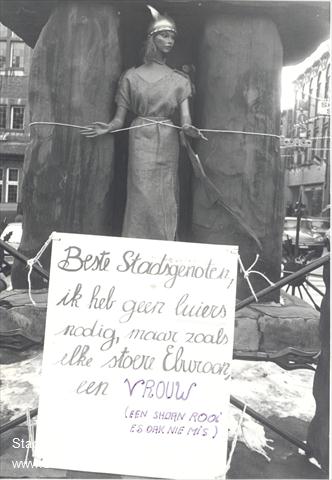 Beste Stadsgenoten,
ik heb geen luiers
nodig, maar zoals
elke stoere Eburoon,
een VROUW
(EEN SHOAN ROOI
ES OAK NIE MIS.)